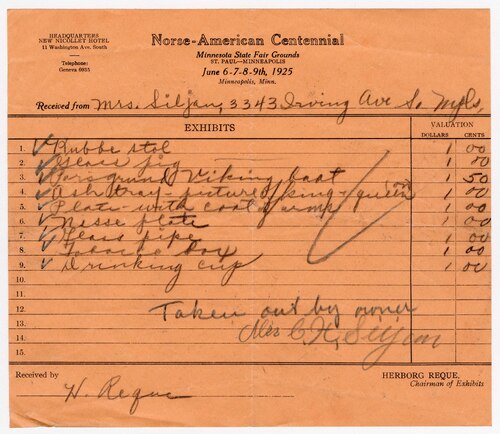 HEADQUARTERS
NEW NICOLLET HOTEL
11 Washington Ave. South
Telephone:
Geneva 6935
Norse-American Centennial
Minnesota State Fair Grounds
ST. PAUL—MINNEAPOLIS
June 6-7-8-9th, 1925
Minneapolis, Minn.
Received from Mrs. Siljan, 3343 Irving Ave So. Mpls,
EXHIBITS
VALUATION
DOLLARS CENTS
1. ✓ Rubbe stol 1 00
2. ✓ Glass pig 1 00
3. ✓ Forsgrund Viking boat 1 50
4. ✓ Ash tray-picture of king-queen 1 00
5. ✓ Plate with coat of arms 1 00
6. ✓ Nisse plate 1 00
7. ✓ Glass pipe 1 00
8. ✓ Tobacco box 1 00
9. ✓ Drinking cup 1 00
10.
11.
12. Taken out by owner
13. Mrs C. H. Siljan
14.
15.
Received by
H. Reque
HERBORG REQUE,
Chairman of Exhibits